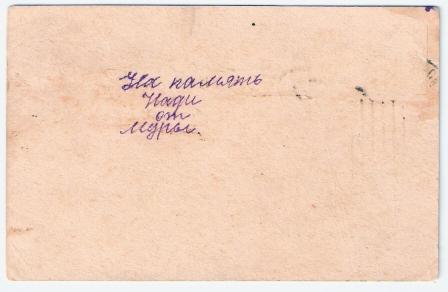 На память
Нади
от
Муры.